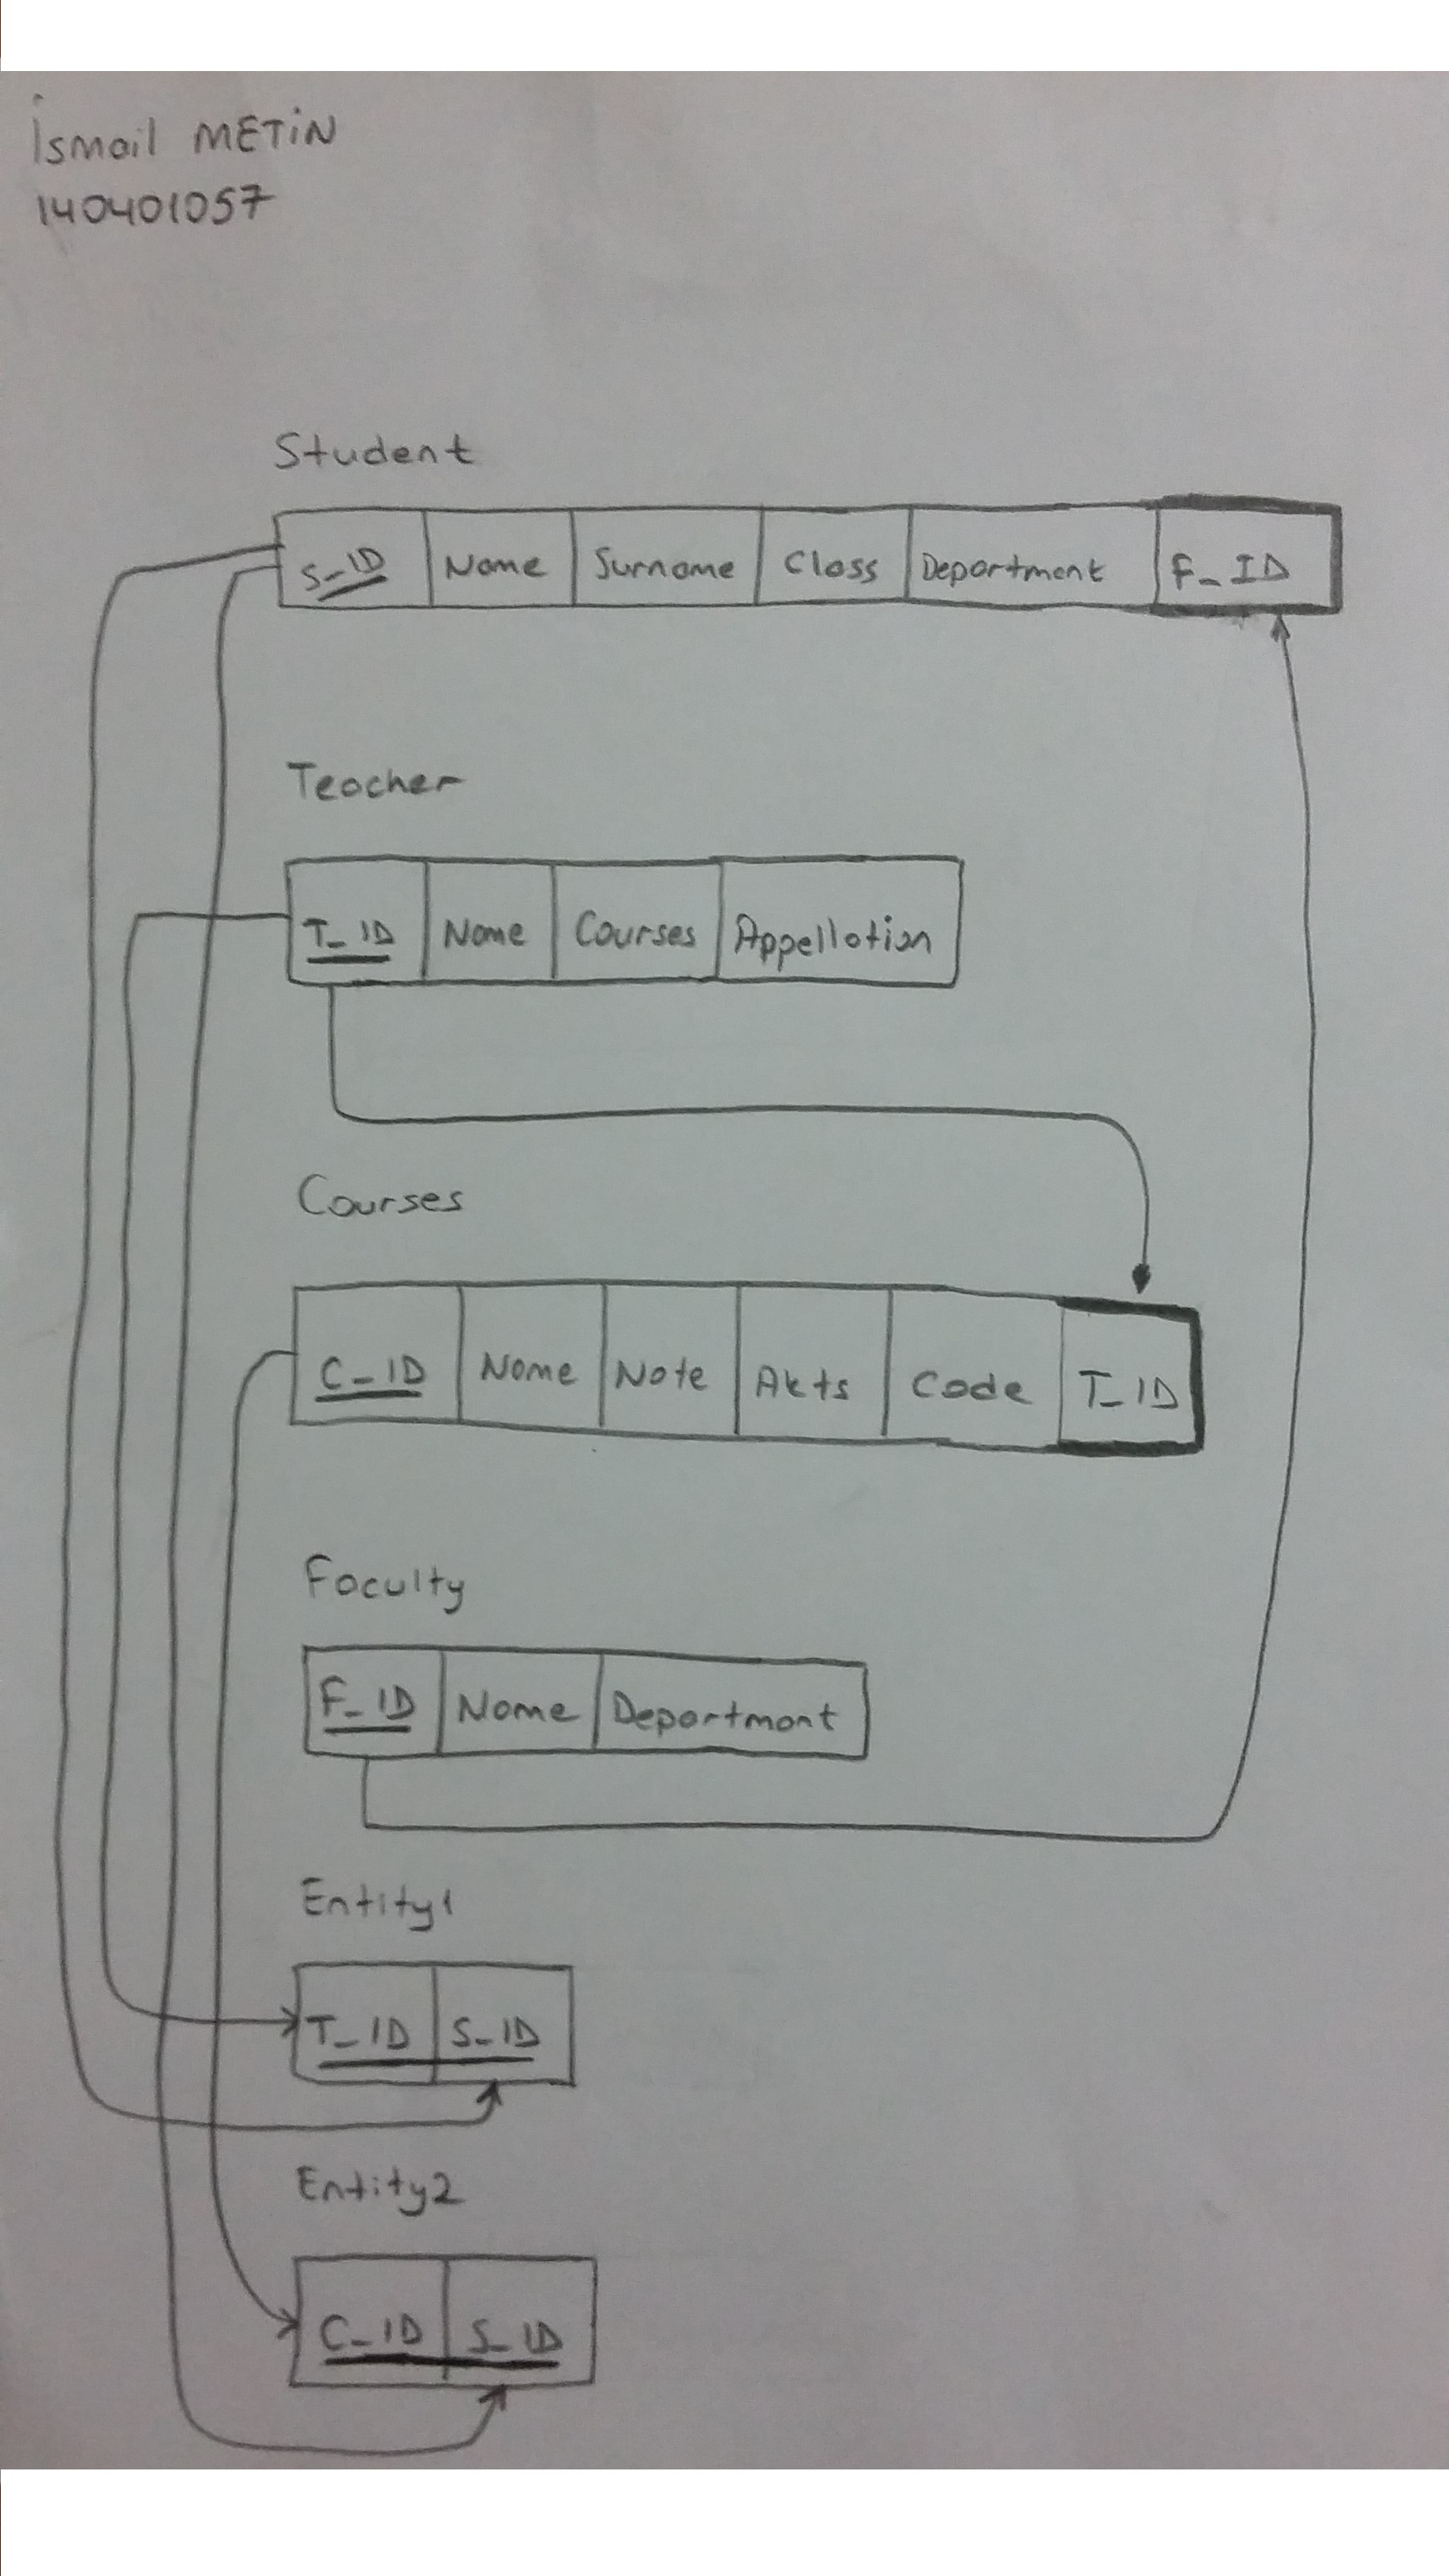 İsmail METİN
140401057
Student
S_ID Name Surname Class Department F_ID
Teacher
T_ID Name Courses Appellation
Courses
C_ID Name Note Akts Code T_ID
Faculty
F_ID Name Department
Entity1
T_ID S_ID
Entity2
C_ID S_ID